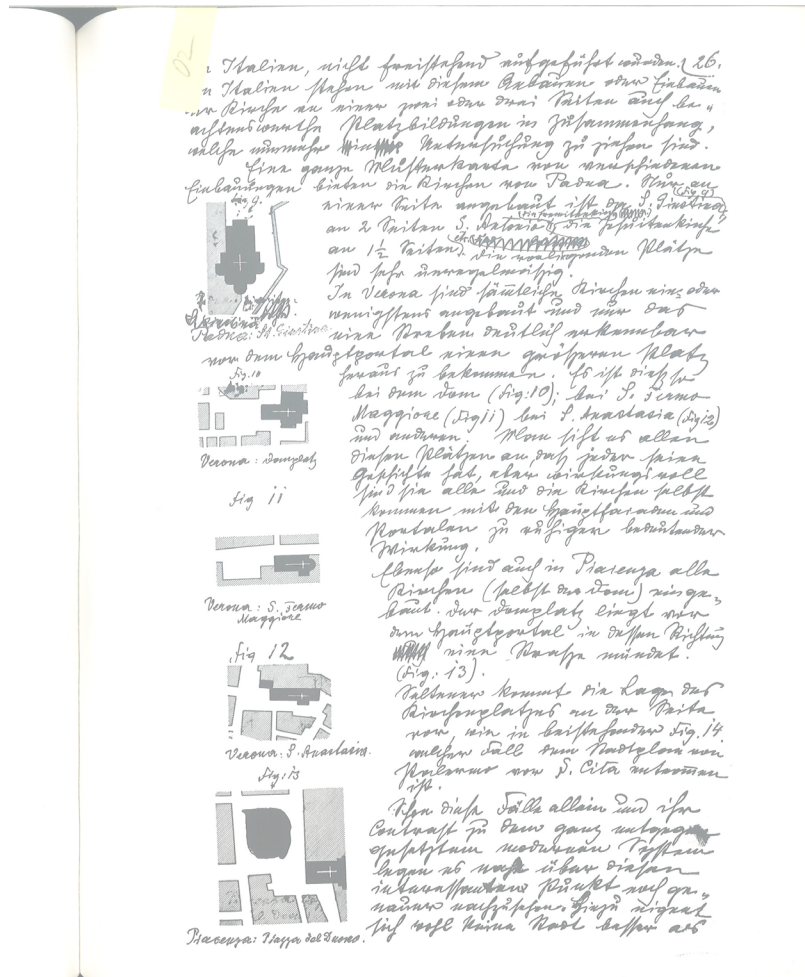 02
26.
in Italien, nicht freistehend aufgeführt wurden.
In Italien stehen mit diesem Anbauen oder Einbauen
der Kirche an einer zwei oder drei Seiten auch be„
achtenswerthe Platzbildungen in Zusammenhang,
welche nunmehr Untersuchung zu ziehen sind.
Eine ganze Musterkarte von verschiedenen
Einbauungen bieten die Kirchen von Padua. Nur an
(Fig 9)
einer Seite angebaut ist da S. Giustina,
an 2 Seiten S. Antonio die Jesuitenkirche
an 1½ Seiten. Die vorliegenden Plätze
sind sehr unregelmässig.
In Verona sind sämmtliche Kirchen ein= oder
wenigstens angebaut und nur das
eine Streben deutlich erkennbar
vor dem Hauptportal einen größeren Platz
heraus zu bekommen. Es ist dieß so
bei dem Dom (Fig:10); bei S. Fermo
Maggiore (Fig 11) bei S. Anastasia (Fig 12)
und anderen. Man siht es allen
diesen Plätzen an, daß jeder seine
Geschichte hat, aber wirkungsvoll
sind sie alle und die Kirchen selbst
kommen mit den Hauptfaςaden und
Portalen zu ruhiger bedeutender
Wirkung.
Ebenso sind auch in Piacenza alle
Kirchen (selbst der Dom) einge„
baut. Der Domplatz liegt vor
dem Hauptportal in dessen Richtung
eine Straße mündet.
(Fig: 13).
Seltener kommt die Lage des
Kirchenplatzes an der Seite
vor, wie in beistehender Fig. 14
welcher Fall dem Stadtplan von
Palermo vor S. Cita entnommen
ist.
Schon diese Fälle allein und ihr
Contrast zu dem ganz entgegen
gesetztem modernen System
legen es nah über diesen
interessanten Punkt noch ge„
nauer nachzusehen. Hiezu eignet
sich wohl keine Stadt besser als
Fig 9.
Padua: St. Giustina
Fig. 10
Verona: Domplatz
Fig 11
Verona: S. Fermo
Maggiore
Fig 12
Verona: S. Anastasia.
Fig: 13
Piacenza: Piazza del Duomo.